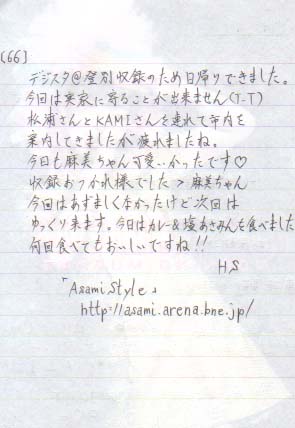 (66)
デジスタ@登別収録のため日帰りできました。
今回は実家に寄ることが出来ません(T-T)
松浦さんとKAMIさんを連れて市内を
案内してきましたが疲れましたね。
今日も麻美ちゃん可愛いかったです♡
収録おつかれ様でした>麻美ちゃん
今回はあずましくなかったけど次回は
ゆっくり来ます。今日はカレー&塩あさみんを食べました
何回食べてもおいしいですね!!
HS
「Asami Style」
http://asami.arena.bne.jp/